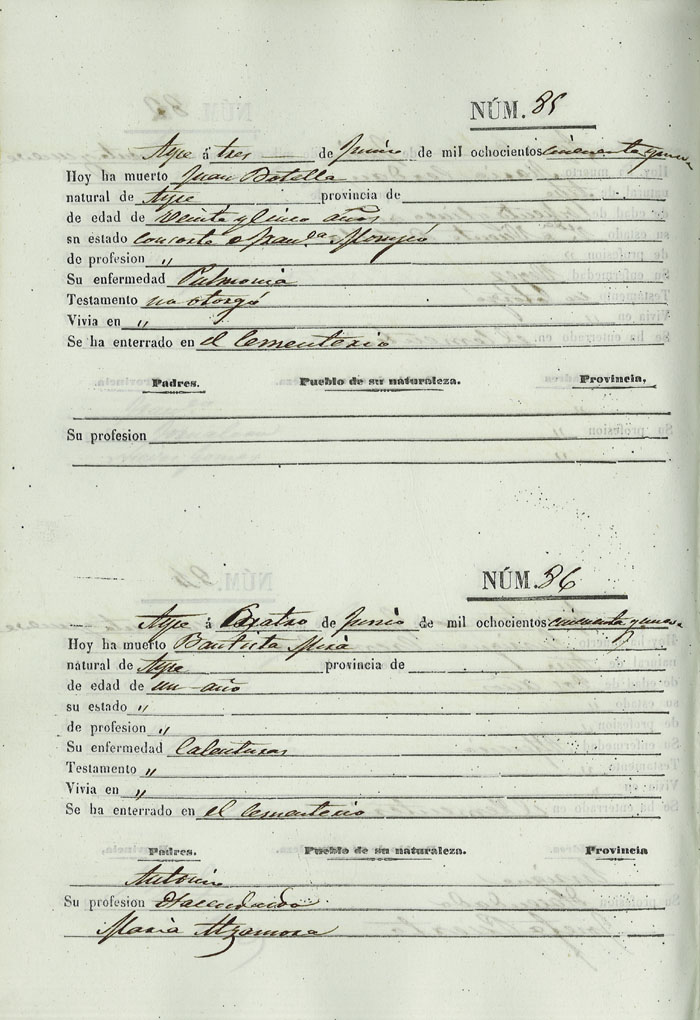 NÚM. 35
Aspe á tres de Junio de mil ochocientos cincuenta y nueve
Hoy ha muerto Juan Botella
natural de Aspe provincia de
de edad de veinte y cinco años
sn estado consorte de Fran.ca
de profesion "
Su enfermedad Pulmonia
Testamento no otorgó
Vivia en "
Se ha enterrado en el Cementerio
Padres. Pueblo de su naturaleza. Provincia,
Su profesion
NÚM. 36
Aspe á Cuatro de Junio de mil ochocientos cincuenta y nueve
Hoy ha muerto Bautista Mira
natural de Aspe provincia de
de edad de un año
su estado "
de profesion "
Su enfermedad Calenturas
Testamento "
Vivia en "
Se ha enterrado en el Cementerio
Padres. Pueblo de su naturaleza. Provincia
Antonio
Su profesion Hacendado
Maria Alzamora